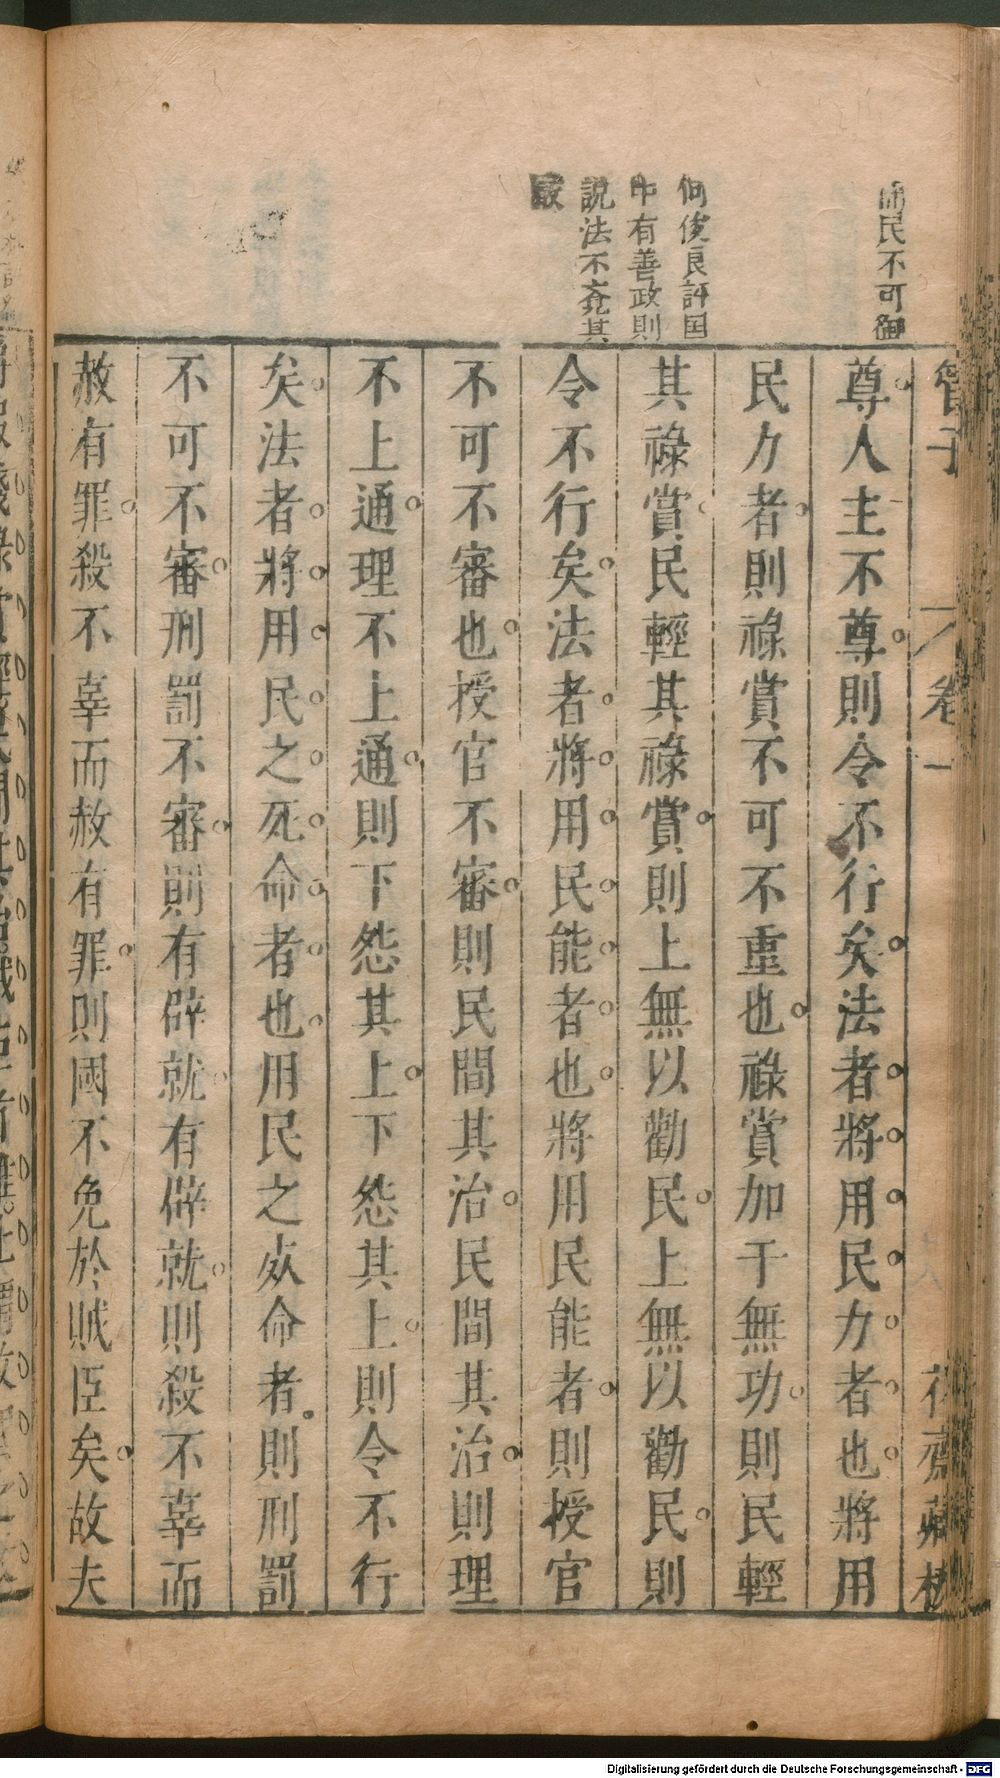 管子
卷一
花齋藏板
民不可御
何俊良評国
中有善政則
說法不弃其
尊人主不尊則令不行矣法者將用民力者也將用
民力者則祿賞不可不重也祿賞加于無功則民輕
其祿賞民輕其祿賞則上無以勸民上無以勸民則
令不行矣法者將用民能者也將用民能者則授官
不可不審也授官不審則民間其治民間其治則理
不上通理不上通則下怨其上下怨其上則令不行
矣法者將用民之死命者也用民之死命者則刑罰
不可不審刑罰不審則有辟就有辟就則殺不辜而
赦有罪殺不辜而赦有罪則國不免於賊臣矣故夫
Digitalisierung gefördert durch die Deutsche Forschungsgemeinschaft - DFG